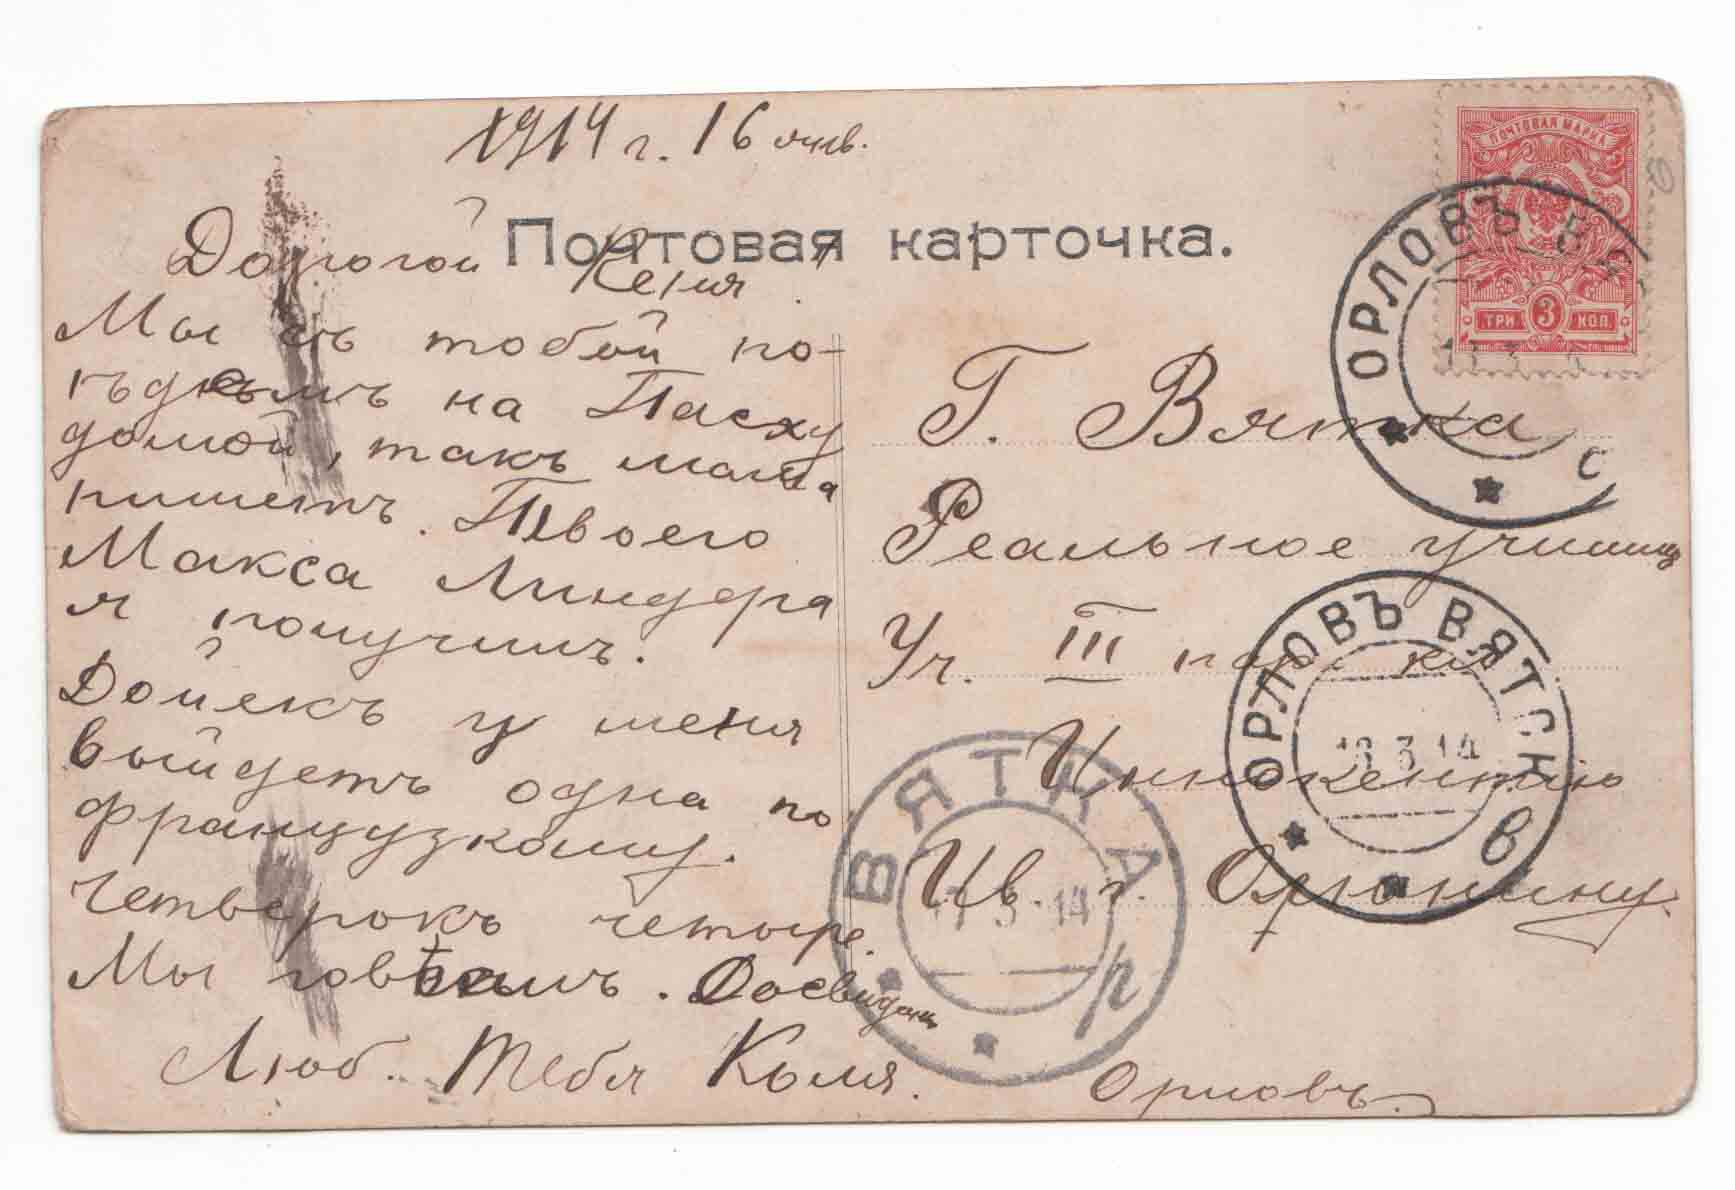 1914 г. 16
Почтовая карточка.
Дорогой Кеня
Мы съ тобой по-
ѣдемъ на Пасху
домой, такъ мама
пишетъ. Твоего
Макса Линдера
я получилъ.
Двоекъ у меня
выйдетъ одна по
французкому.
Четверокъ четыре.
Мы говѣемъ. Досвидан
Люб. Тебя Коля.
Орловъ.
ПОЧТОВАЯ МАРКА
ТРИ 3 КОП.
ОРЛОВЪ
с
Г. Вятка
Реальное училищ
Уч. III
Иннокентію
Ив. г. Орюнину.
ОРЛОВЪ ВЯТСК
16 3 14
в
ВЯТКА
17 3 14
р